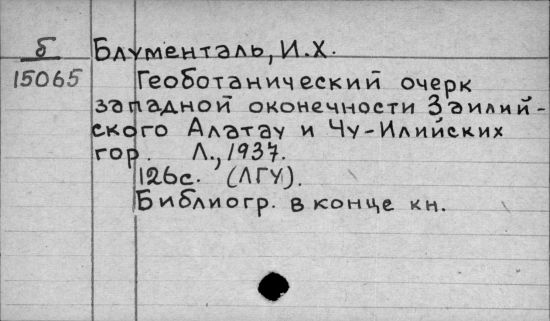 Б Блументаль, И.Х.
15065 Геоботанический очерк
западной оконечности Заилий-
ского Алатау и Чу-Илийских
гор. Л., 1937.
126с. (ЛГУ).
Библиогр. в конце кн.